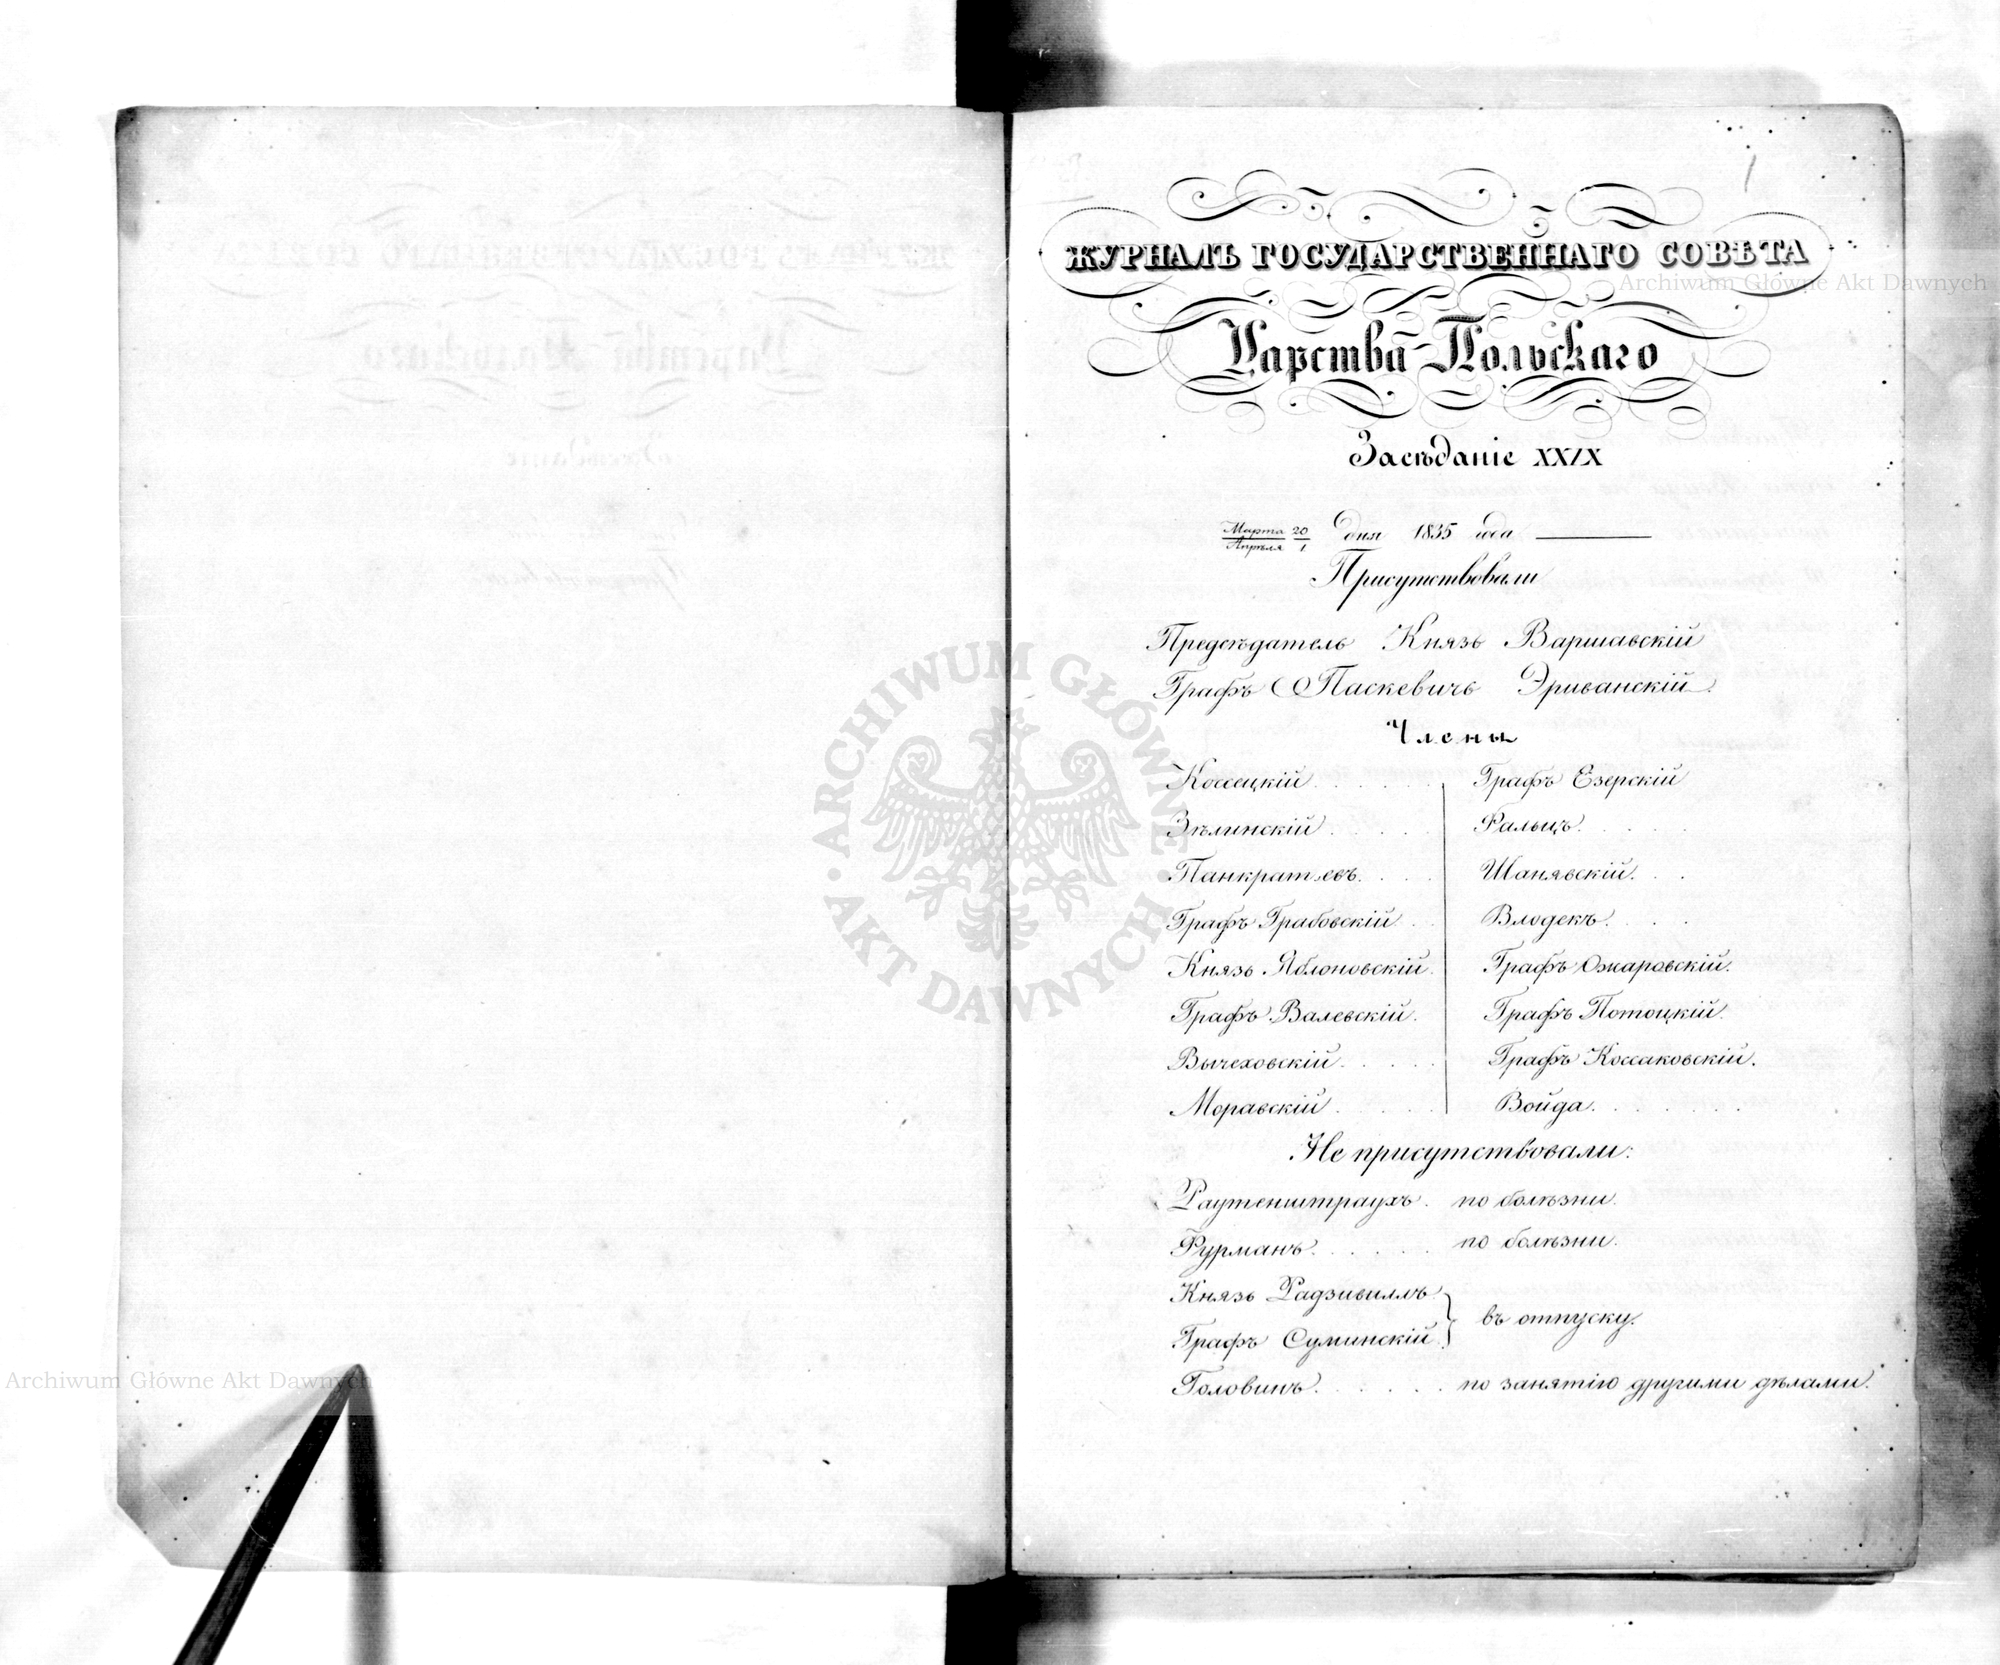 1
ЖУРНАЛЪ ГОСУДАРСТВЕННАГО СОВѢТА
Archiwum Główne Akt Dawnych
Царства Польскаго
Засѣданіе XXIX
Марта 20 / Апрѣля 1 дня 1835 года
Присутствовали
Предсѣдатель Князь Варшавскій
Графъ Паскевичь Эриванскій.
Члены
Коссецкій . . . . . . Графъ Езерскій
Зѣлинскій . . . . . Фальцъ. . . . .
Панкратьевъ. . . . Шанявскій. . .
Графъ Грабовскій . . Влодекъ. . . .
Князь Яблоновскій. Графъ Ожаровскій.
Графъ Валевскій. Графъ Потоцкій.
Вычеховскій . . . . . Графъ Коссаковскій.
Моравскій . . . . . Войда. . . . . . .
Не присутствовали:
Раутенштраухъ. по болѣзни.
Фурманъ. . . . . . по болѣзни.
Князь Радзивиллъ
Графъ Суминскій } въ отпуску.
Головинъ. . . . . . по занятію другими дѣлами.
ARCHIWUM GŁÓWNE AKT DAWNYCH
Archiwum Główne Akt Dawnych